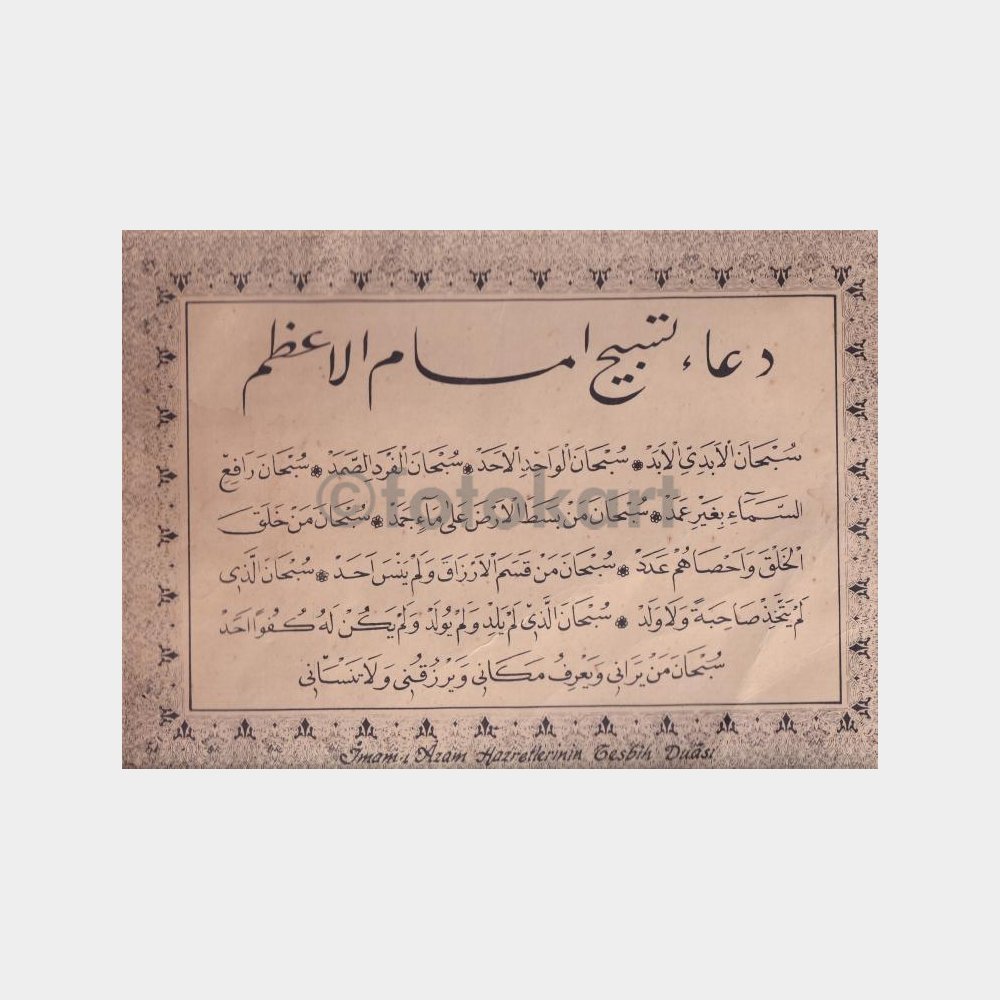 دعاء تسبيح امام الاعظم
سُبْحَانَ الْاَبَدِيِّ الْاَبَدْ ❋ سُبْحَانَ الْوَاحِدِ الْاَحَدْ ❋ سُبْحَانَ الْفَرْدِ الصَّمَدْ ❋ سُبْحَانَ رَافِعِ
السَّمَآءِ بِغَيْرِ عَمَدْ ❋ سُبْحَانَ مَنْ بَسَطَ الْاَرْضَ عَلٰى مَاءٍ جَمَدْ ❋ سُبْحَانَ مَنْ خَلَقَ
الْخَلْقَ وَاَحْصَاهُمْ عَدَدْ ❋ سُبْحَانَ مَنْ قَسَمَ الْاَرْزَاقَ وَلَمْ يَنْسَ اَحَدْ ❋ سُبْحَانَ الَّذِى
لَمْ يَتَّخِذْ صَاحِبَةً وَلَا وَلَدْ ❋ سُبْحَانَ الَّذِى لَمْ يَلِدْ وَلَمْ يُولَدْ وَلَمْ يَكُنْ لَهُ كُفُوًا اَحَدْ
سُبْحَانَ مَنْ يَرَانِى وَيَعْرِفُ مَكَانِى وَيَرْزُقُنِى وَلَا يَنْسَانِى
İmam-ı Âzam Hazretlerinin Tesbih Duâsı
©fotokart